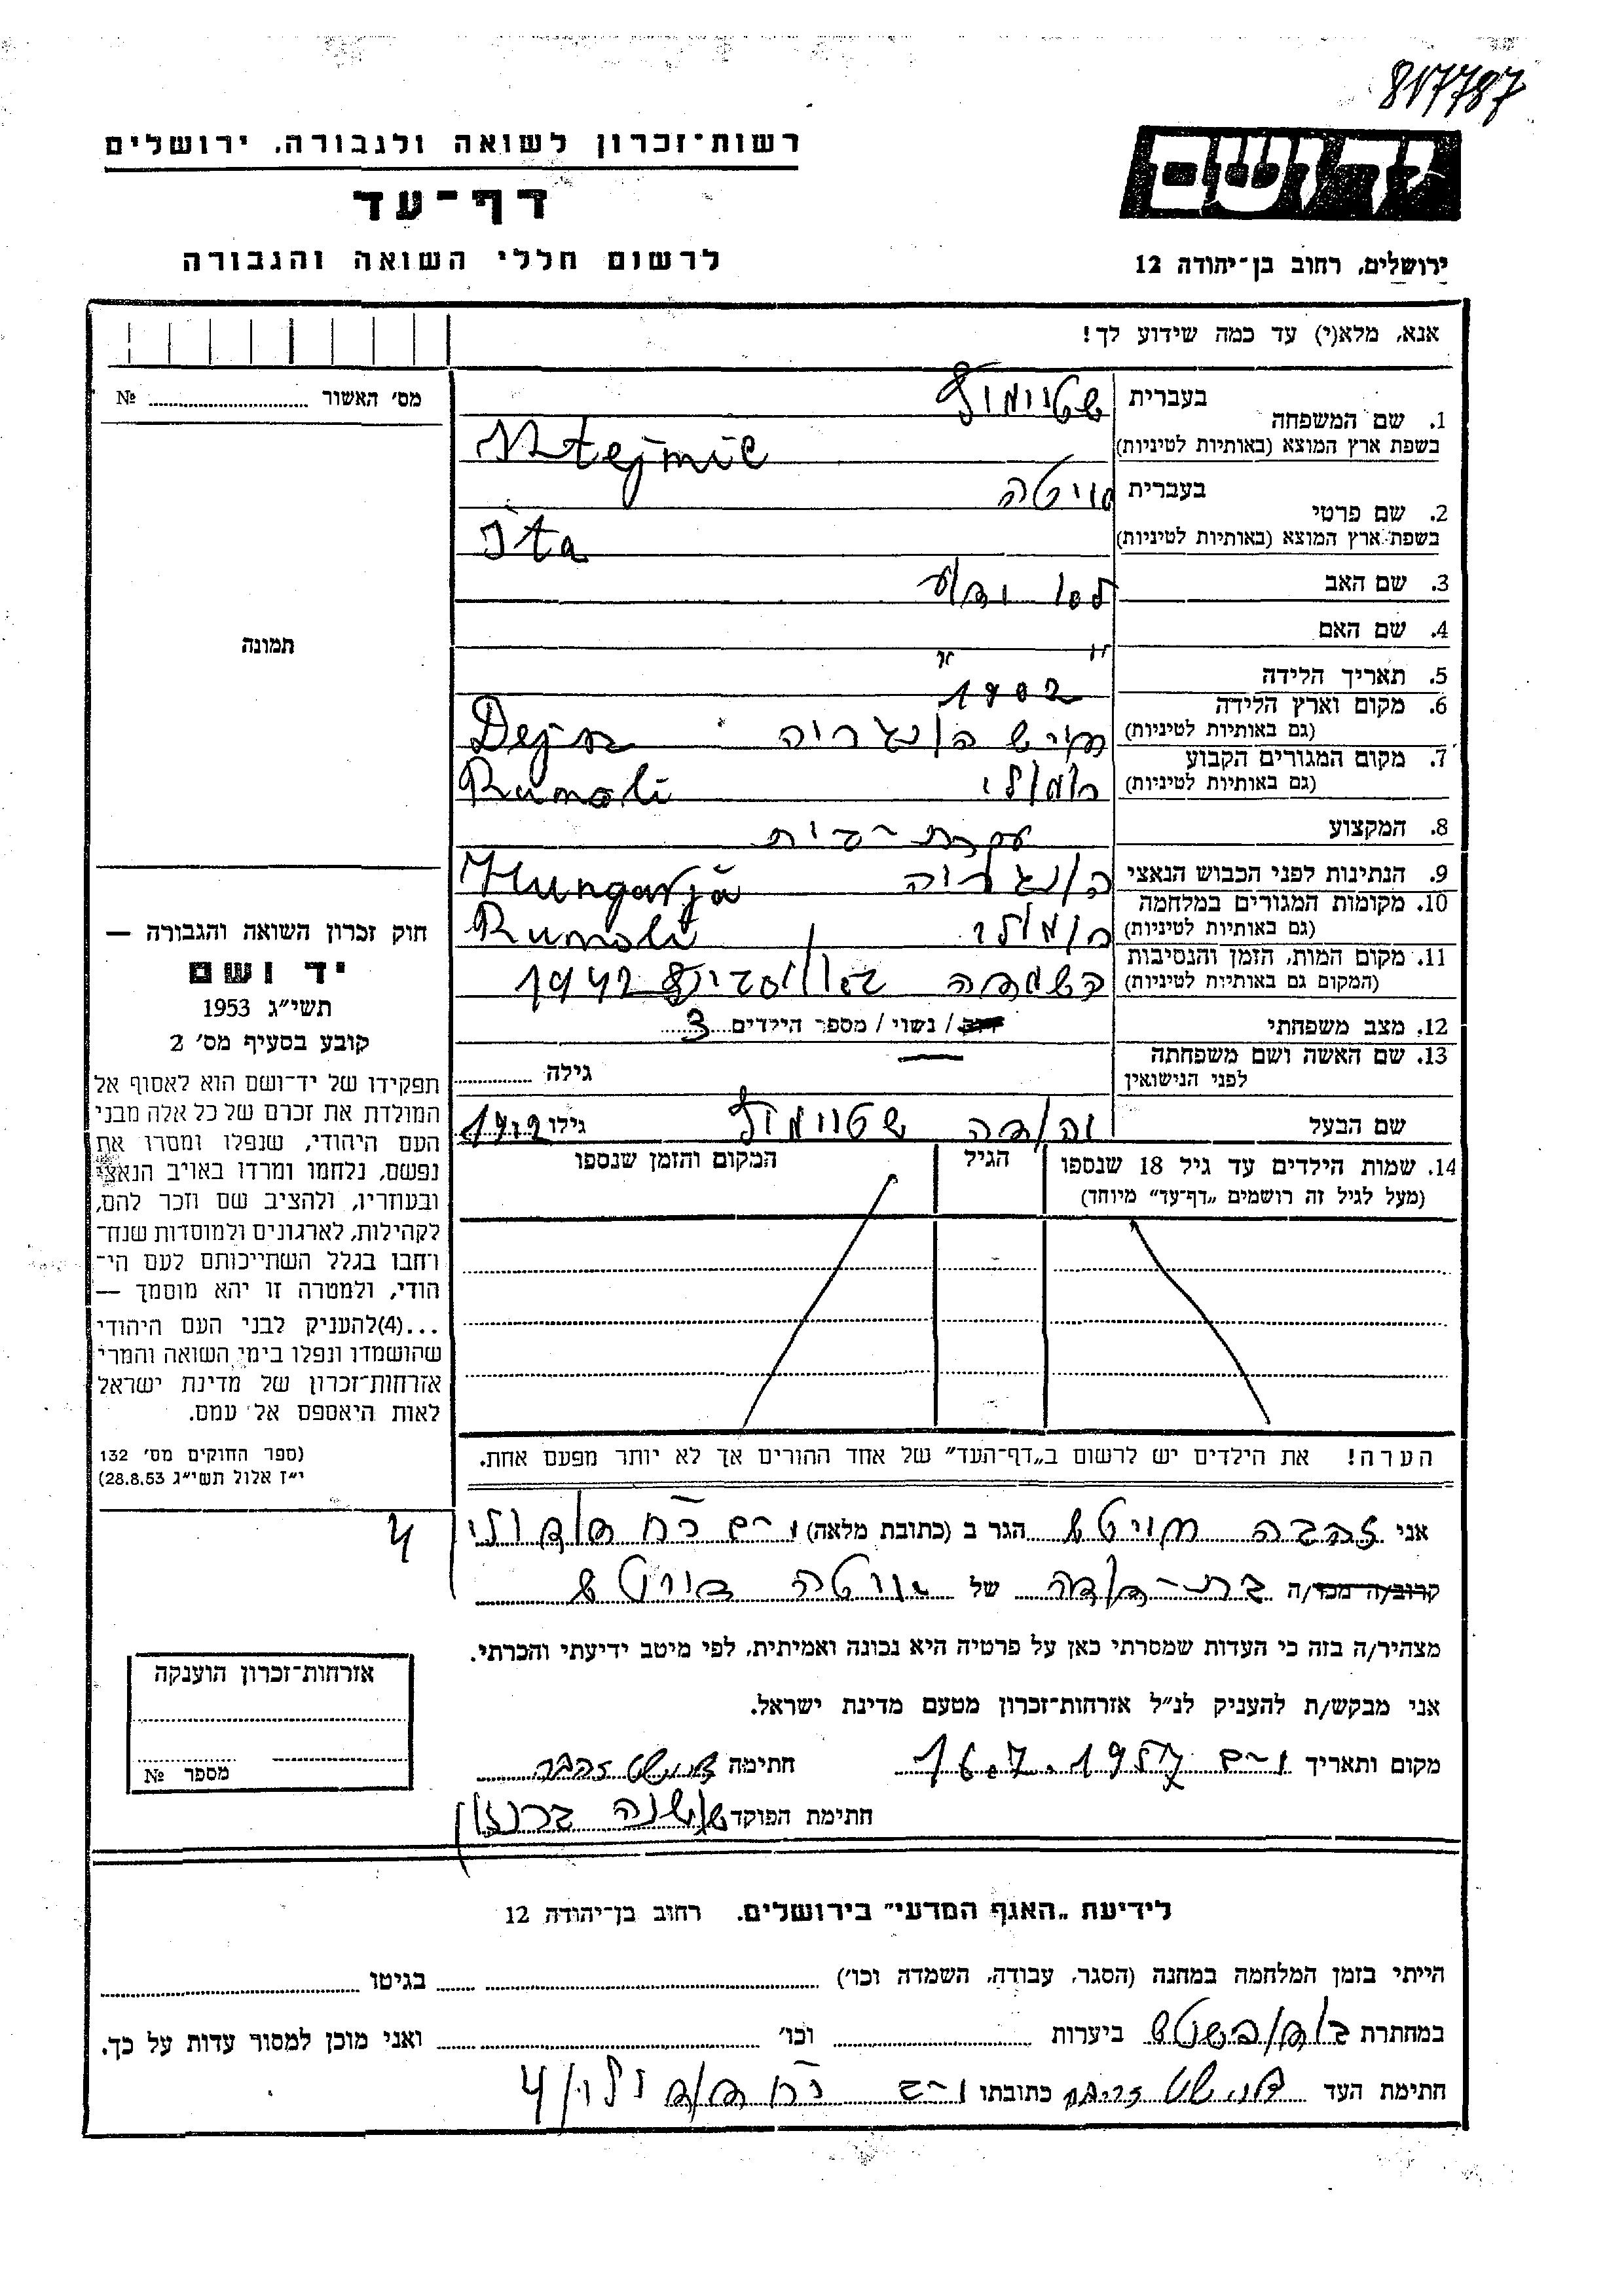 817787
רשות־זכרון לשואה ולגבורה, ירושלים
דף־עד
לרשום חללי השואה והגבורה
יד ושם
ירושלים, רחוב בן־יהודה 12
אנא, מלא(י) עד כמה שידוע לך!
מס׳ האשור № 
1. שם המשפחה בעברית
בשפת ארץ המוצא (באותיות לטיניות) Stejmic
2. שם פרטי בעברית
בשפת ארץ המוצא (באותיות לטיניות) Ita
3. שם האב לא ידוע
4. שם האם " "
5. תאריך הלידה 1902
6. מקום וארץ הלידה
(גם באותיות לטיניות) הונגריה Dejsz
7. מקום המגורים הקבוע
(גם באותיות לטיניות) Rumoli
8. המקצוע עקרת־בית
9. הנתינות לפני הכבוש הנאצי הונגריה Hungarjá
10. מקומות המגורים במלחמה
(גם באותיות לטיניות) Rumoli
11. מקום המות, הזמן והנסיבות
(המקום גם באותיות לטיניות) השמדה 1942
12. מצב משפחתי רוק / נשוי / מספר הילדים 3
13. שם האשה ושם משפחתה
לפני הנישואין גילה
שם הבעל יהודה גילו 1902
14. שמות הילדים עד גיל 18 שנספו
(מעל לגיל זה רושמים „דף־עד״ מיוחד)
הגיל
המקום והזמן שנספו
הערה! את הילדים יש לרשום ב„דף־העד״ של אחד ההורים אך לא יותר מפעם אחת.
תמונה
חוק זכרון השואה והגבורה —
יד ושם
תשי״ג 1953
קובע בסעיף מס׳ 2
תפקידו של יד־ושם הוא לאסוף אל
המולדת את זכרם של כל אלה מבני
העם היהודי, שנפלו ומסרו את
נפשם, נלחמו ומרדו באויב הנאצי
ובעוזריו, ולהציב שם וזכר להם,
לקהילות, לארגונים ולמוסדות שנח־
רחבו בגלל השתייכותם לעם הי־
הודי, ולמטרה זו יהא מוסמך —
...(4)להעניק לבני העם היהודי
שהושמדו ונפלו בימי השואה והמרי
אזרחות־זכרון של מדינת ישראל
לאות היאספם אל עמם.
(ספר החוקים מס׳ 132
י״ז אלול תשי״ג 28.8.53)
אני זהבה הגר ב (כתובת מלאה)
4
קרוב/ה מכר/ה בת־דודה של
מצהיר/ה בזה כי העדות שמסרתי כאן על פרטיה היא נכונה ואמיתית, לפי מיטב ידיעתי והכרתי.
אני מבקש/ת להעניק לנ״ל אזרחות־זכרון מטעם מדינת ישראל.
מקום ותאריך 16.7.1957 חתימה זהבה
חתימת הפוקד שושנה
אזרחות־זכרון הוענקה
מספר №
לידיעת „האגף המדעי״ בירושלים. רחוב בן־יהודה 12
הייתי בזמן המלחמה במחנה (הסגר, עבודה, השמדה וכו׳) בגיטו
במחתרת ביערות וכו׳ ואני מוכן למסור עדות על כך.
חתימת העד כתובתו 4